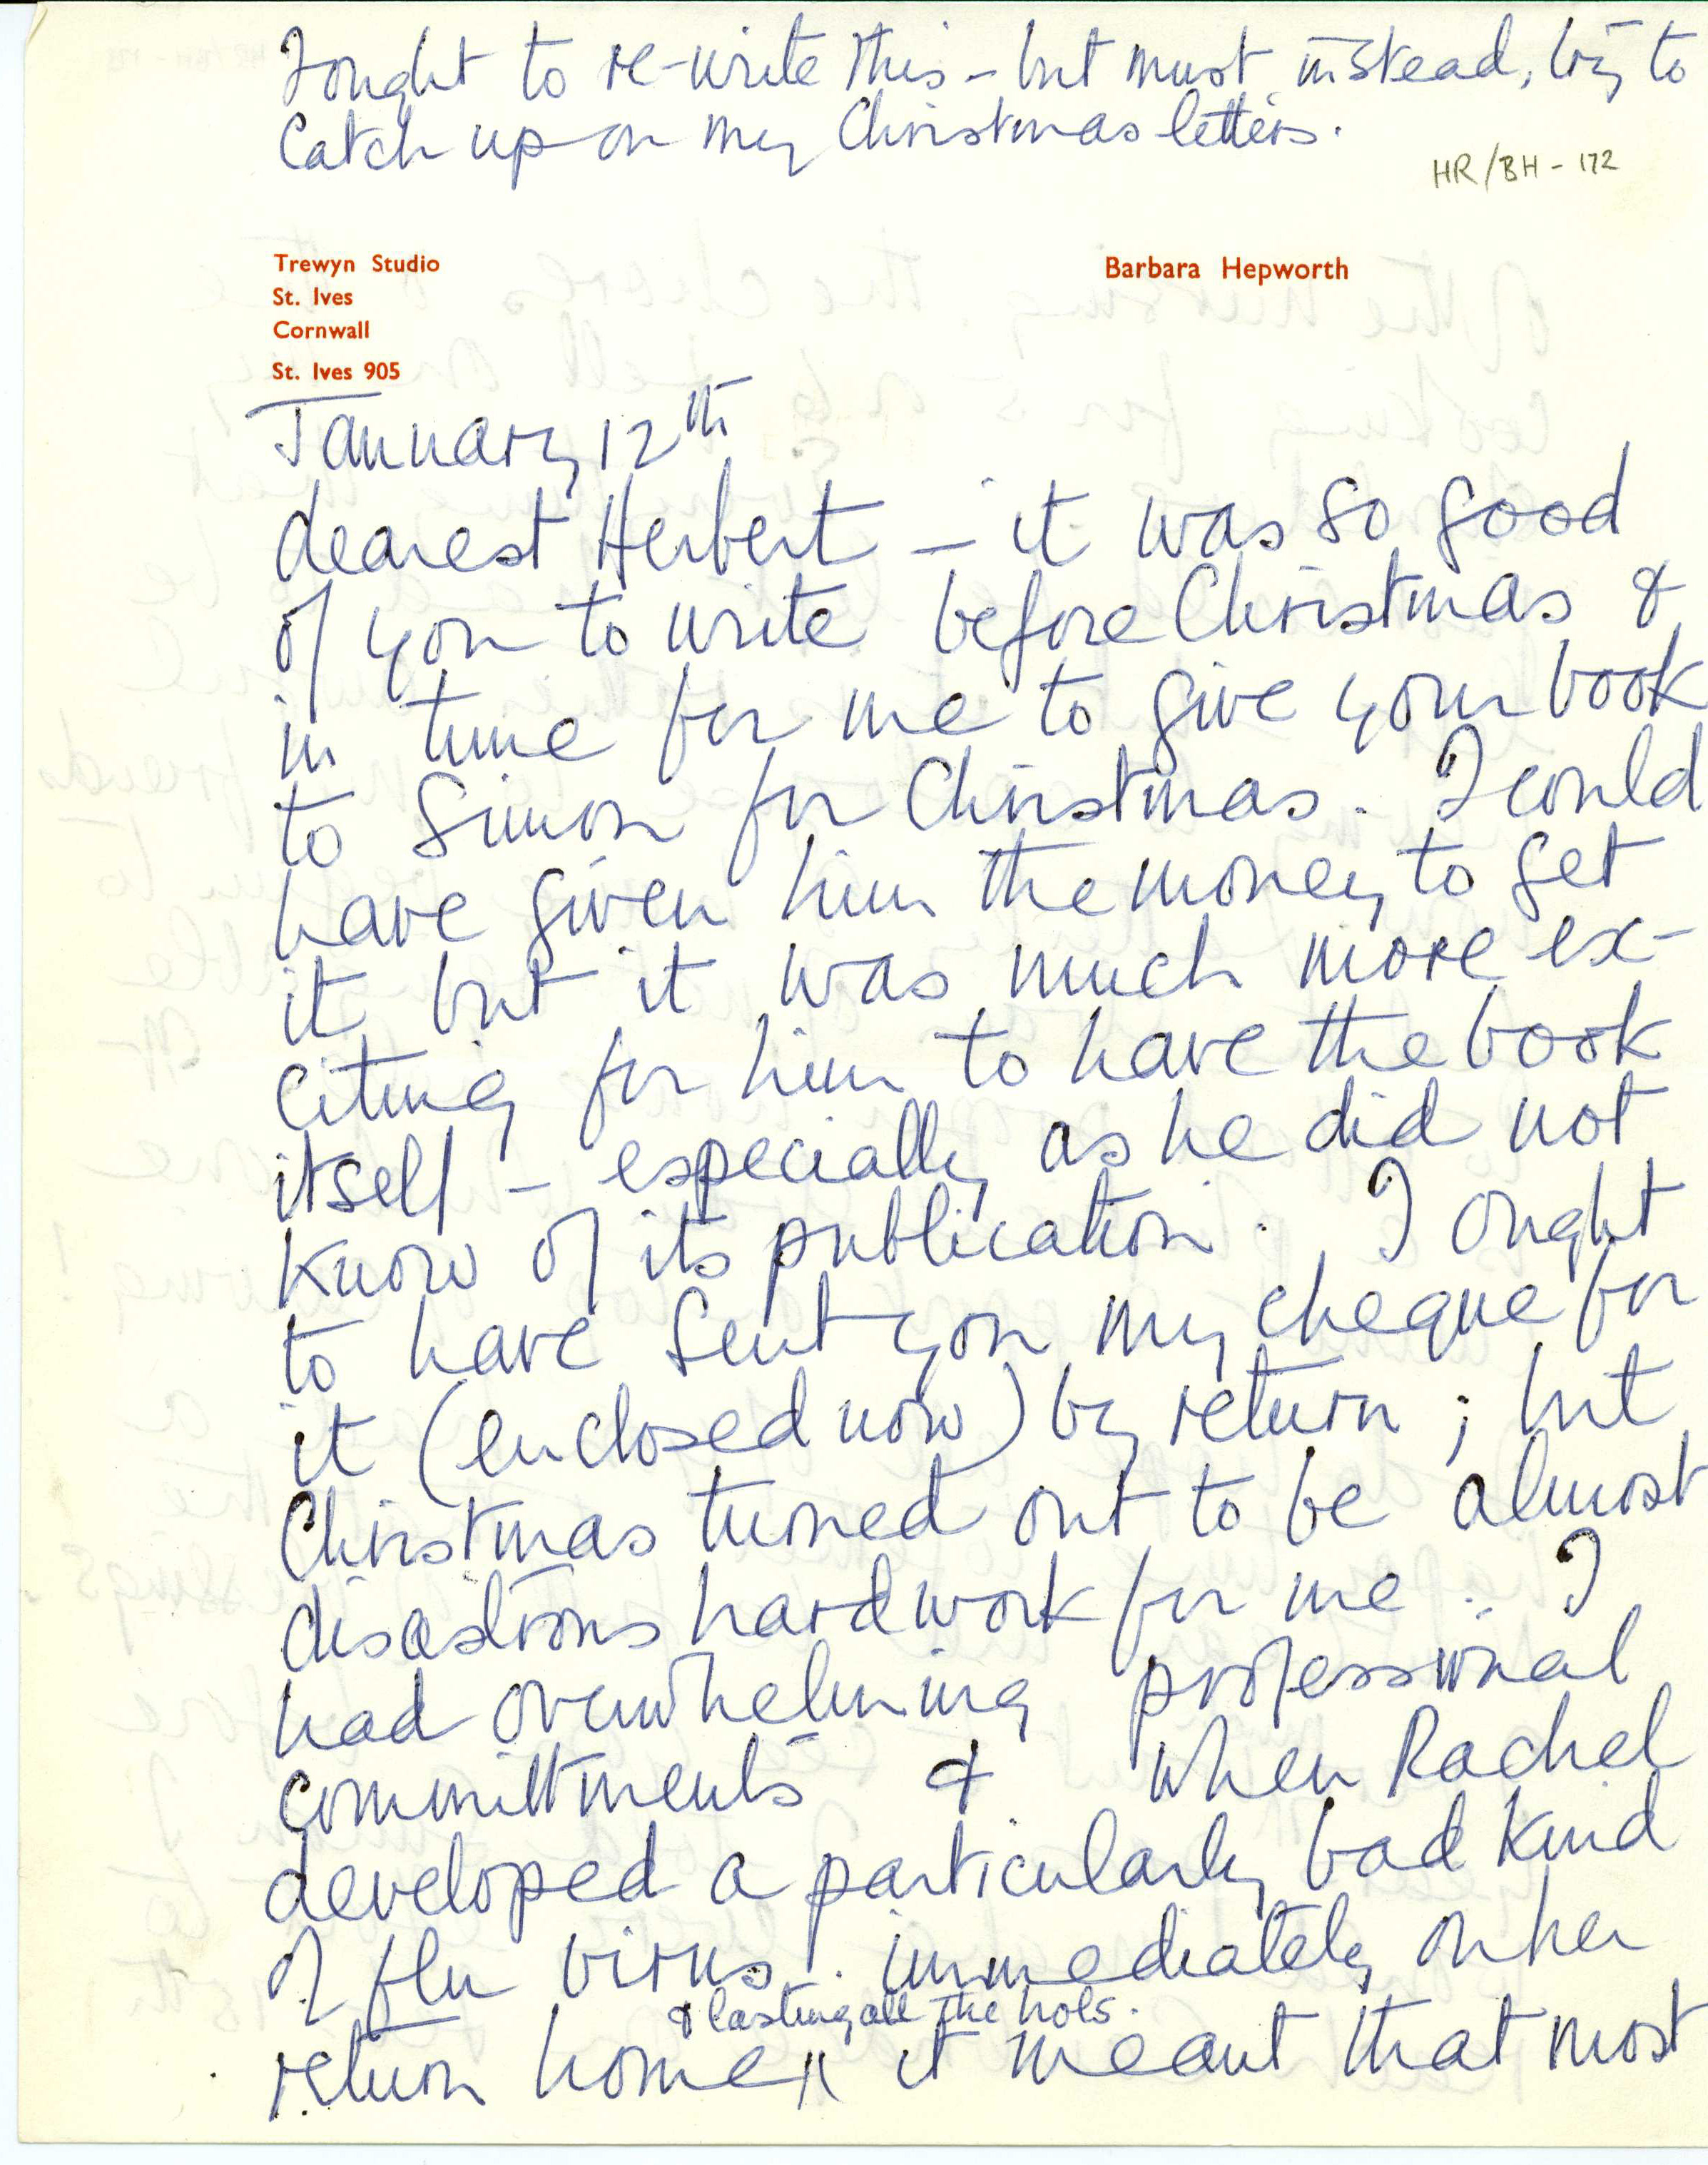 I ought to re-write this – but must, instead, try to
catch up on my Christmas letters.
HR/BH - 172
Trewyn Studio
St. Ives
Cornwall
St. Ives 905
Barbara Hepworth
January 12th
dearest Herbert – it was so good
of you to write before Christmas &
in time for me to give your book
to Simon for Christmas. I could
have given him the money to get
it but it was much more ex-
citing for him to have the book
itself – especially as he did not
know of its publication. I ought
to have sent you my cheque for
it (enclosed now) by return; but
Christmas turned out to be almost
disastrous hard work for me. I
had overwhelming professional
committments & when Rachel
developed a particularly bad kind
of flu virus immediately on her
& lasting all the hols.
return home it meant that most